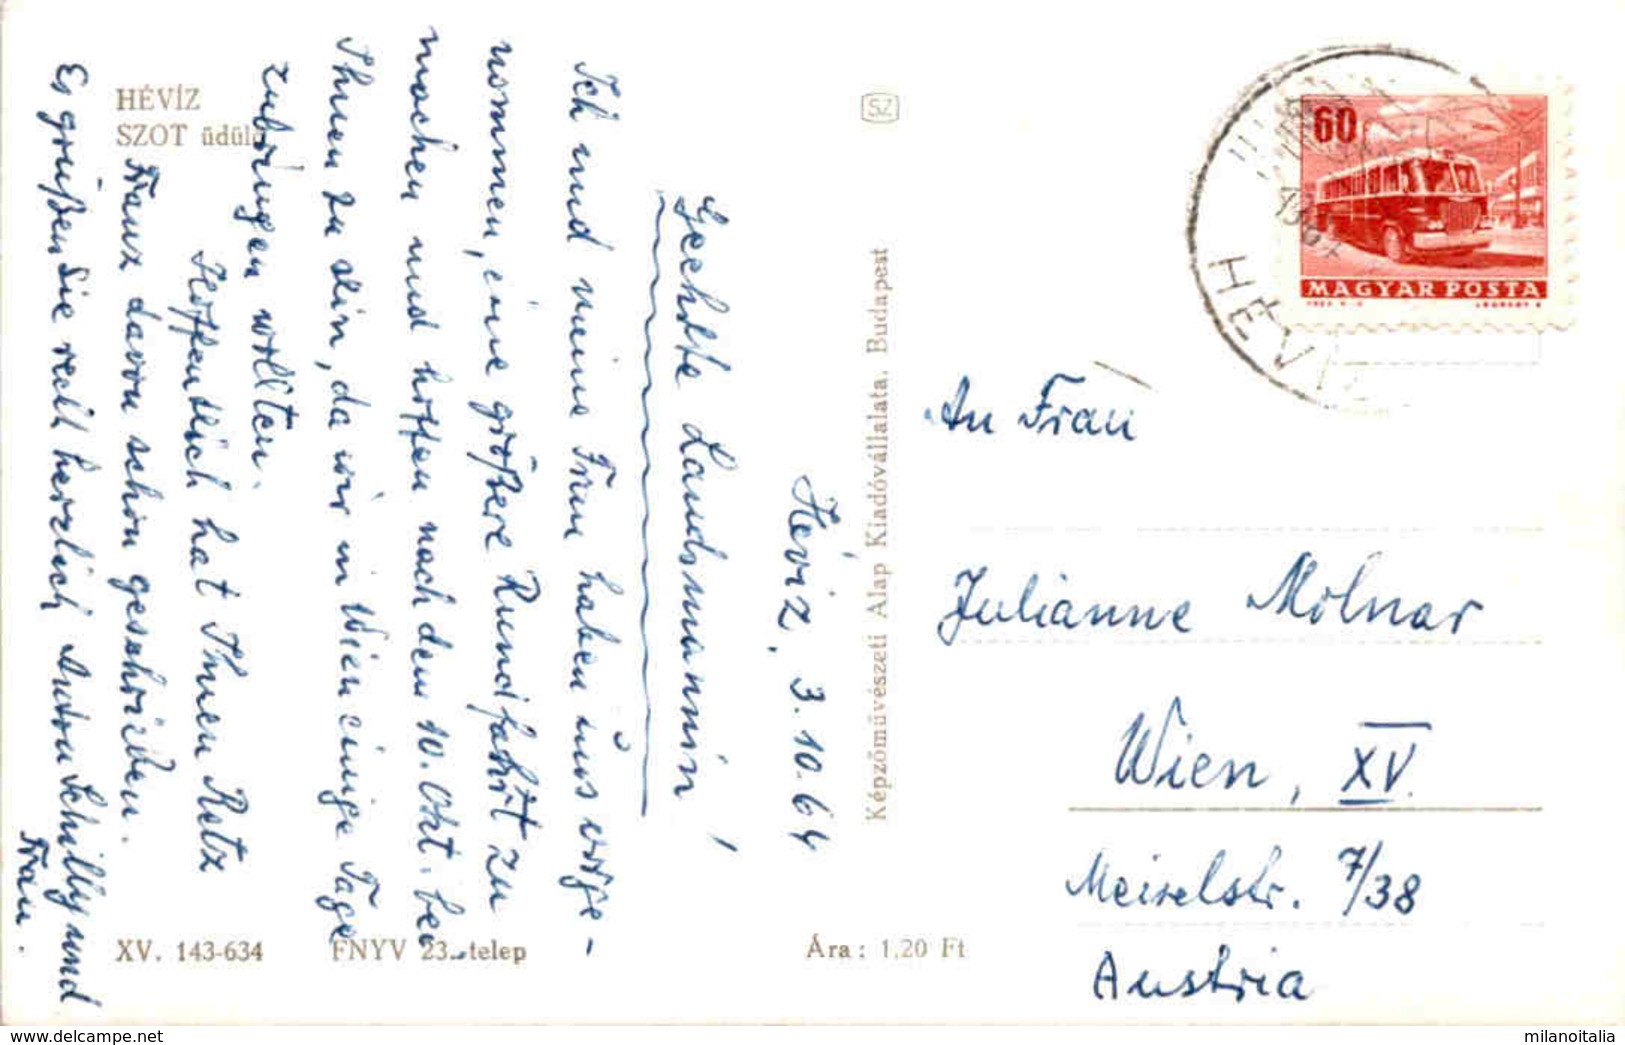 HÉVÍZ
SZOT üdülő
Hévíz, 3.10.64
Geehrte Landsmännin!
Ich und meine Frau haben uns vorge-
nommen, eine größere Rundfahrt zu
machen und hoffen nach dem 10. Okt. bei
Ihnen zu sein, da wir in Wien einige Tage
zubringen wollten.
Hoffentlich hat Ihnen Retz
Franz davon schon geschrieben.
Es grüßen Sie recht herzlich Anton Schilly und
Frau.
XV. 143-634
FNYV 23. telep
Ára: 1,20 Ft
SZ
Képzőművészeti Alap Kiadóvállalata, Budapest
60
MAGYAR POSTA
HÉVÍZ
An Frau
Julianne Molnar
Wien, XV.
Meiselstr. 7/38
Austria
milanoitalia